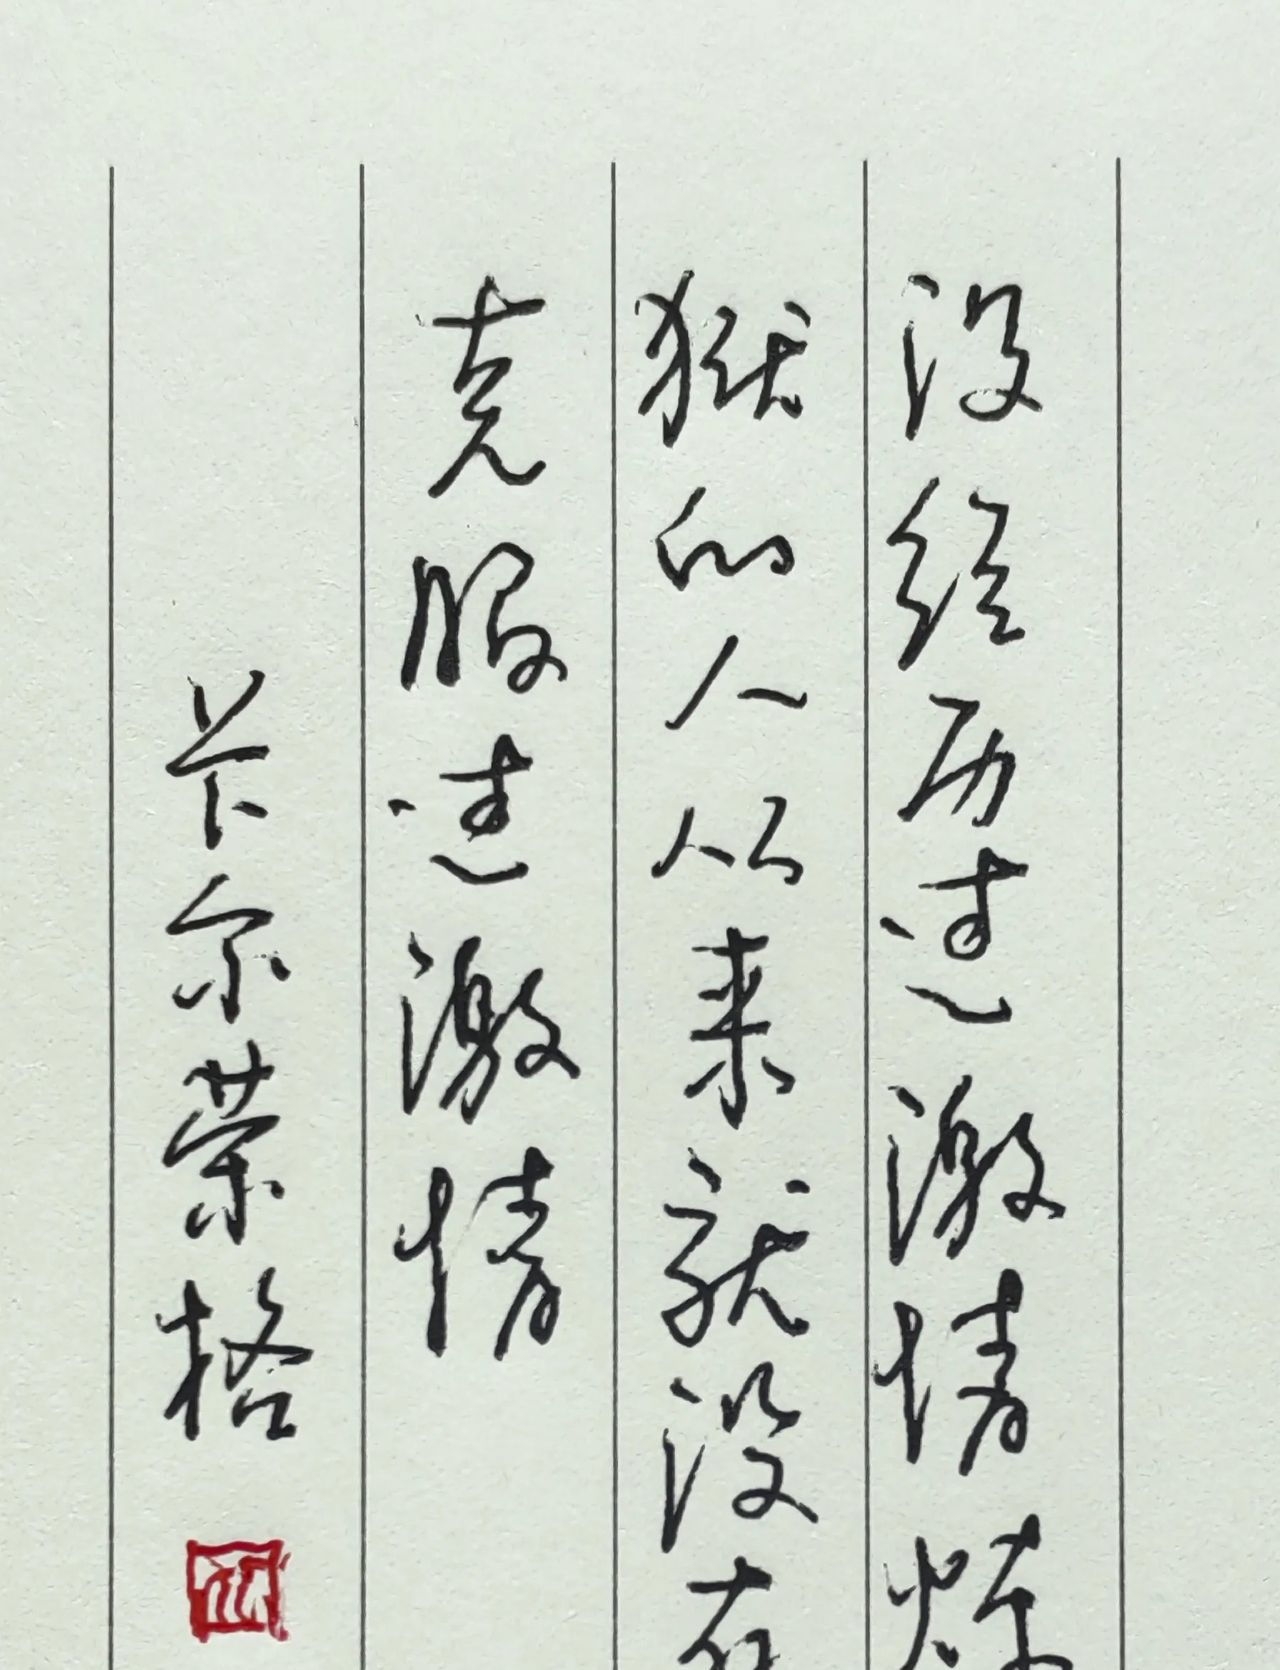 没经历过激情炼
狱的人从来就没有
克服过激情
卡尔荣格